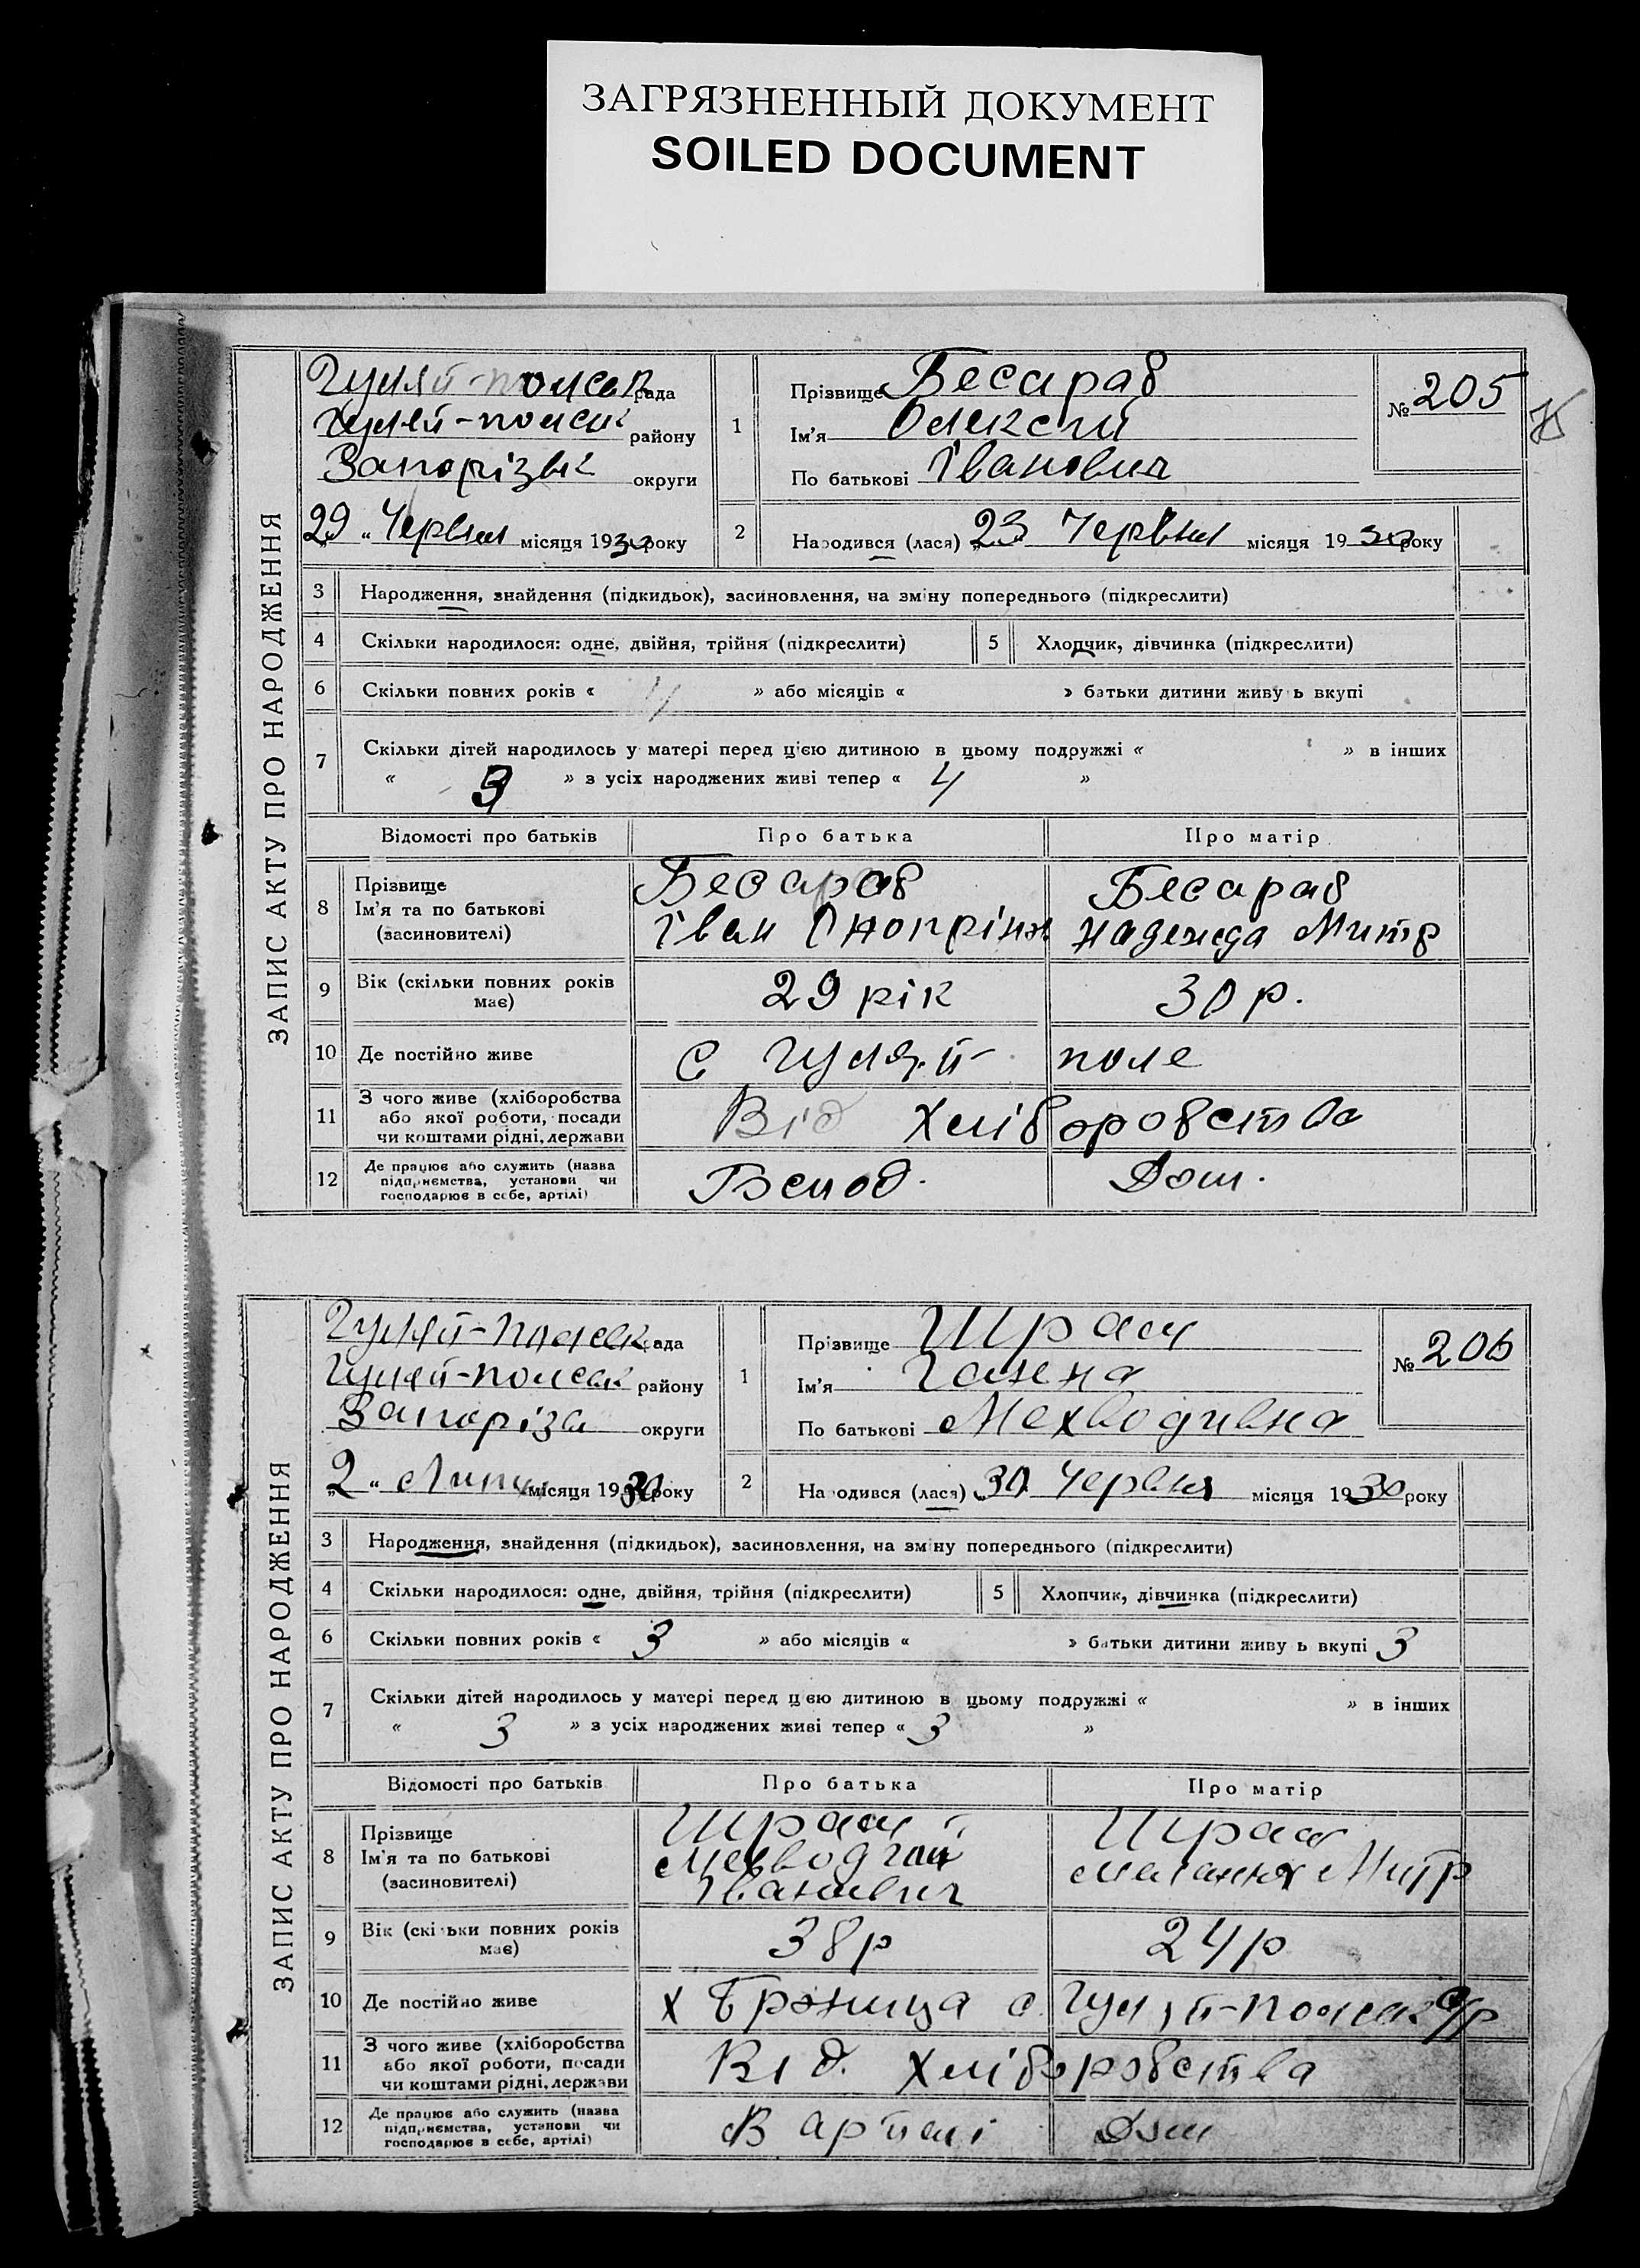 ЗАГРЯЗНЕННЫЙ ДОКУМЕНТ
SOILED DOCUMENT
ЗАПИС АКТУ ПРО НАРОДЖЕННЯ
Гуляй-польськ рада
Гуляй-польськ району
Запорізьк округи
„29“ Червня місяця 1930 року
1
Прізвище Бесараб
Ім'я Олексій
По батькові Іванович
№ 205
2
Народився (лася) „23 Червня місяця 1930 року
3 Народження, знайдення (підкидьок), засиновлення, на зміну попереднього (підкреслити)
4 Скільки народилося: одне, двійня, трійня (підкреслити) 5 Хлопчик, дівчинка (підкреслити)
6 Скільки повних років « 4 » або місяців « » батьки дитини живуть вкупі
7 Скільки дітей народилось у матері перед цією дитиною в цьому подружжі « » в інших
« 3 » з усіх народжених живі тепер « 4 »
Відомості про батьків Про батька Про матір
8 Прізвище Бесараб Бесараб
Ім'я та по батькові Іван Надежда Митр
(засиновителі)
9 Вік (скільки повних років має) 29 рік 30 р.
10 Де постійно живе с Гуляй-поле
11 З чого живе (хліборобства або якої роботи, посади чи коштами рідні, держави Від Хліборобства
12 Де працює або служить (назва підприємства, установи чи господарює в себе, артілі) Дом.
ЗАПИС АКТУ ПРО НАРОДЖЕННЯ
Гуляй-польськ рада
Гуляй-польськ району
Запорізь округи
„2“ Липня місяця 1930 року
1
Прізвище Шрам
Ім'я Галена
По батькові Мехводивна
№ 206
2
Народився (лася) „30 Червня місяця 1930 року
3 Народження, знайдення (підкидьок), засиновлення, на зміну попереднього (підкреслити)
4 Скільки народилося: одне, двійня, трійня (підкреслити) 5 Хлопчик, дівчинка (підкреслити)
6 Скільки повних років « 3 » або місяців « » батьки дитини живуть вкупі 3
7 Скільки дітей народилось у матері перед цією дитиною в цьому подружжі « » в інших
« 3 » з усіх народжених живі тепер « 3 »
Відомості про батьків Про батька Про матір
8 Прізвище Шрам Шрам
Ім'я та по батькові Мехводий Маланья Митр
(засиновителі) Іванович
9 Вік (скільки повних років має) 38 р 24 р
10 Де постійно живе х с. Гуляй-польськ с/р
11 З чого живе (хліборобства або якої роботи, посади чи коштами рідні, держави Від. Хліборобства
12 Де працює або служить (назва підприємства, установи чи господарює в себе, артілі) В артілі Дом